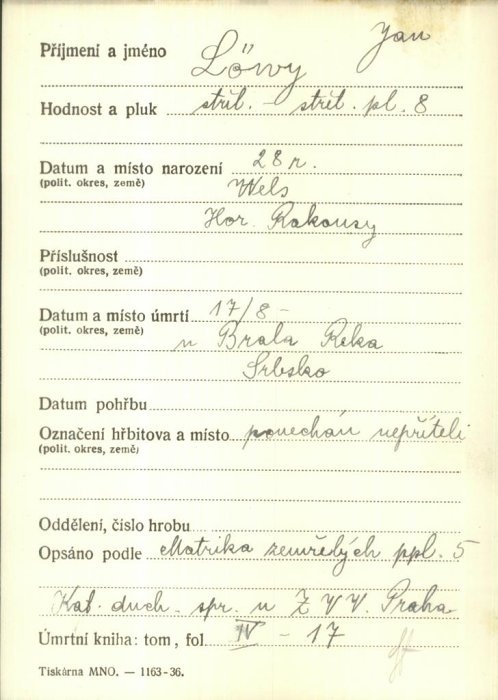 Jan
Příjmení a jméno Löwy
Hodnost a pluk střel. - střel. pl. 8
Datum a místo narození 28 r.
(polit. okres, země) Wels
Hor. Rakousy
Příslušnost
(polit. okres, země)
Datum a místo úmrtí 17/8 -
(polit. okres, země) u Brala Reka
Srbsko
Datum pohřbu
Označení hřbitova a místo ponechán nepříteli
(polit. okres, země)
Oddělení, číslo hrobu
Opsáno podle Matrika zemřelých ppl. 5
Kat. duch. spr. u Z V V. Praha
Úmrtní kniha: tom, fol. IV - 17
Tiskárna MNO. — 1163-36.